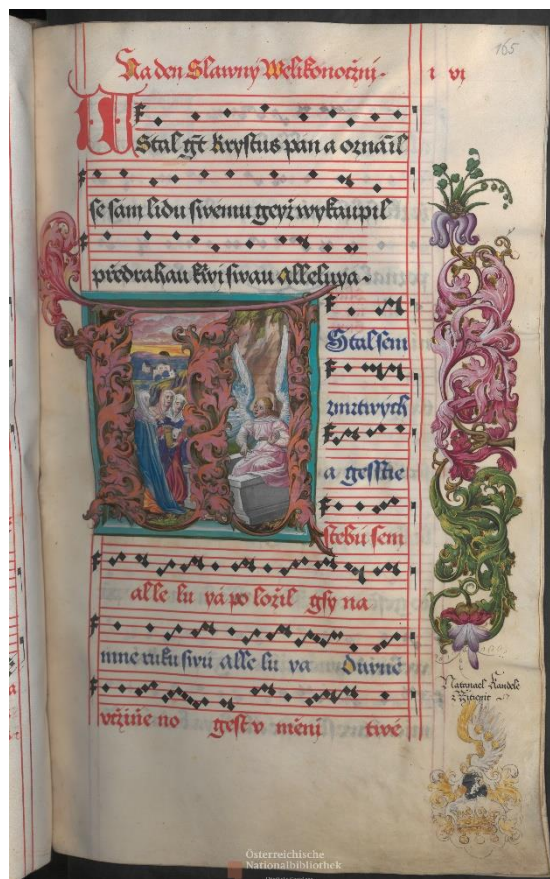 Na den Slawny Welikonoczni. i vi
165
WStal gt Krystus pan a oznail
se sam lidu swemu geyz wykaupil
předrahau krwi swau alleluya.
Stal sem
zmrtwych
a gesstie
stebu sem
alle lu ya po lozil gsy na
mne ruku swu alle lu ya Diwne
vczinie no gest v mieni twe
Natanael
Österreichische
Nationalbibliothek